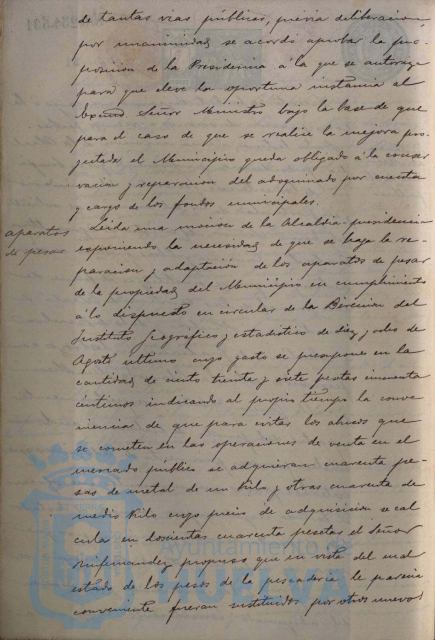 de tantas vias públicas, prévia deliberacion
por unanimidad se acordó aprobar la pro-
posicion de la Presidencia á la que se autoriza
para que eleve la oportuna instancia al
Excmo Señor Ministro bajo la base de que
para el caso de que se realice la mejora pro-
yectada el Municipio queda obligado á la conser
vacion y reparacion del adoquinado por cuenta
y cargo de los fondos municipales.
aparatos
de pesar
Leida una mocion de la Alcaldia-presidencia
exponiendo la necesidad de que se haga la re-
paracion y adaptación de los aparatos de pesar
de la propiedad del Municipio en cumplimiento
á lo dispuesto en circular de la Direccion del
Instituto Geográfico y estadistico de diez y ocho de
Agosto ultimo cuyo gasto se presupone en la
cantidad de ciento treinta y siete pesetas cincuenta
centimos indicando al propio tiempo la conve
niencia de que para evitar los abusos que
se cometen en las operaciones de venta en el
mercado público se adquieran cuarenta pe-
sas de metal de un kilo y otras cuarenta de
medio kilo cuyo precio de adquisicion se cal
cula en doscientas cuarenta pesetas el Señor
propuso que en vista del mal
estado de los pesos de la pescaderia le parecia
conveniente fueran sustituidos por otros nuevos
Ayuntamiento de
HUELVA